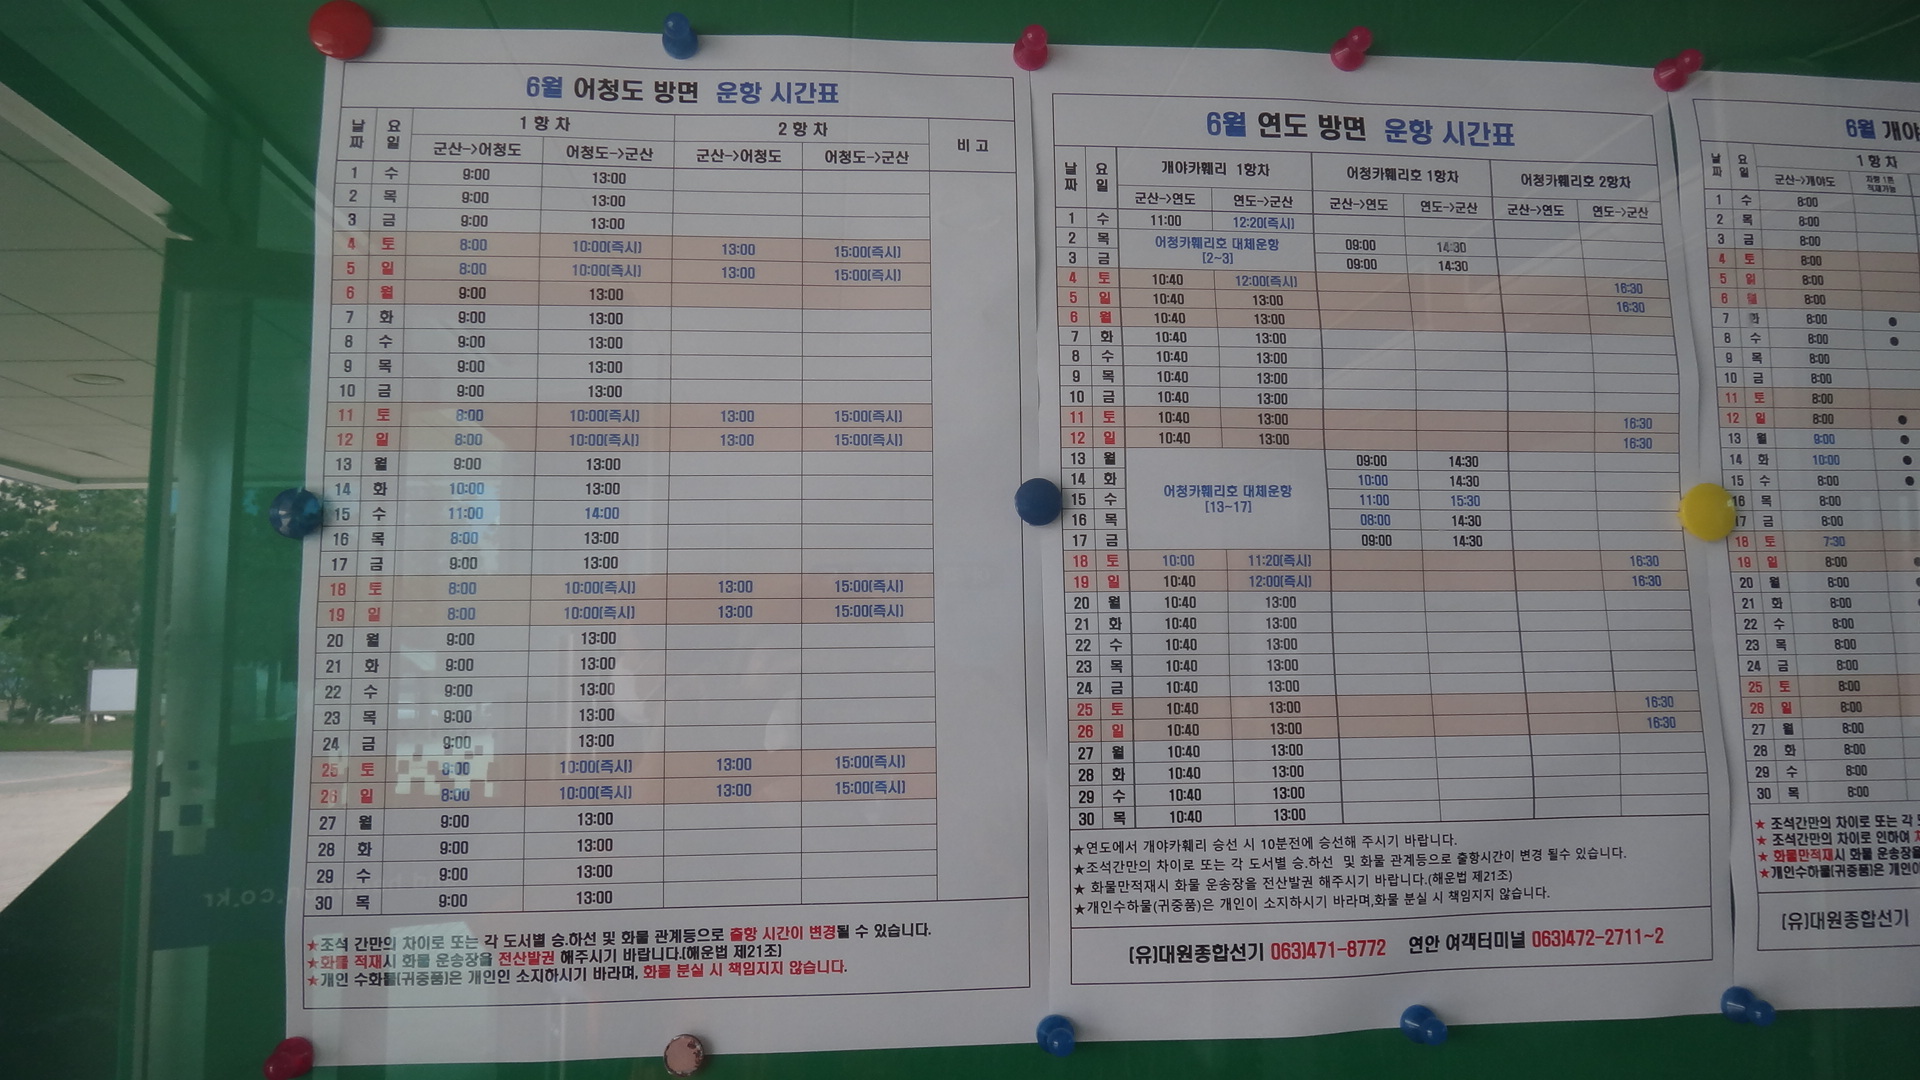 6월 어청도 방면 운항 시간표
날짜 요일 1항차 2항차 비고
군산->어청도 어청도->군산 군산->어청도 어청도->군산
1 수 9:00 13:00
2 목 9:00 13:00
3 금 9:00 13:00
4 토 8:00 10:00(즉시) 13:00 15:00(즉시)
5 일 8:00 10:00(즉시) 13:00 15:00(즉시)
6 월 9:00 13:00
7 화 9:00 13:00
8 수 9:00 13:00
9 목 9:00 13:00
10 금 9:00 13:00
11 토 8:00 10:00(즉시) 13:00 15:00(즉시)
12 일 8:00 10:00(즉시) 13:00 15:00(즉시)
13 월 9:00 13:00
14 화 10:00 13:00
15 수 11:00 14:00
16 목 8:00 13:00
17 금 9:00 13:00
18 토 8:00 10:00(즉시) 13:00 15:00(즉시)
19 일 8:00 10:00(즉시) 13:00 15:00(즉시)
20 월 9:00 13:00
21 화 9:00 13:00
22 수 9:00 13:00
23 목 9:00 13:00
24 금 9:00 13:00
25 토 8:00 10:00(즉시) 13:00 15:00(즉시)
26 일 8:00 10:00(즉시) 13:00 15:00(즉시)
27 월 9:00 13:00
28 화 9:00 13:00
29 수 9:00 13:00
30 목 9:00 13:00
★조석 간만의 차이로 또는 각 도서별 승.하선 및 화물 관계등으로 출항 시간이 변경될 수 있습니다.
★화물 적재시 화물 운송장을 전산발권 해주시기 바랍니다.(해운법 제21조)
★개인 수화물(귀중품)은 개인인 소지하시기 바라며, 화물 분실 시 책임지지 않습니다.
6월 연도 방면 운항 시간표
날짜 요일 개야카훼리 1항차 어청카훼리호 1항차 어청카훼리호 2항차
군산->연도 연도->군산 군산->연도 연도->군산 군산->연도 연도->군산
1 수 11:00 12:20(즉시)
2 목 어청카훼리호 대체운항 09:00 14:30
3 금 [2~3] 09:00 14:30
4 토 10:40 12:00(즉시) 16:30
5 일 10:40 13:00 16:30
6 월 10:40 13:00
7 화 10:40 13:00
8 수 10:40 13:00
9 목 10:40 13:00
10 금 10:40 13:00
11 토 10:40 13:00 16:30
12 일 10:40 13:00 16:30
13 월 09:00 14:30
14 화 어청카훼리호 대체운항 10:00 14:30
15 수 [13~17] 11:00 15:30
16 목 08:00 14:30
17 금 09:00 14:30
18 토 10:00 11:20(즉시) 16:30
19 일 10:40 12:00(즉시) 16:30
20 월 10:40 13:00
21 화 10:40 13:00
22 수 10:40 13:00
23 목 10:40 13:00
24 금 10:40 13:00
25 토 10:40 13:00 16:30
26 일 10:40 13:00 16:30
27 월 10:40 13:00
28 화 10:40 13:00
29 수 10:40 13:00
30 목 10:40 13:00
★연도에서 개야카훼리 승선 시 10분전에 승선해 주시기 바랍니다.
★조석간만의 차이로 또는 각 도서별 승.하선 및 화물 관계등으로 출항시간이 변경 될수 있습니다.
★ 화물만적재시 화물 운송장을 전산발권 해주시기 바랍니다.(해운법 제21조)
★개인수하물(귀중품)은 개인이 소지하시기 바라며,화물 분실 시 책임지지 않습니다.
(유)대원종합선기 063)471-8772 연안 여객터미널 063)472-2711~2
6월 개야
날짜 요일 1항차
군산->개야도
1 수 8:00
2 목 8:00
3 금 8:00
4 토 8:00
5 일 8:00
6 월 8:00
7 화 8:00 ●
8 수 8:00 ●
9 목 8:00
10 금 8:00
11 토 8:00
12 일 8:00 ●
13 월 9:00 ●
14 화 10:00 ●
15 수 8:00 ●
16 목 8:00
17 금 8:00
18 토 7:30
19 일 8:00
20 월 8:00
21 화 8:00
22 수 8:00
23 목 8:00
24 금 8:00
25 토 8:00
26 일 8:00
27 월 8:00
28 화 8:00
29 수 8:00
30 목 8:00
★ 조석간만의 차이로 또는 각
★ 조석간만의 차이로 인하여
★ 화물만적재시 화물 운송장을
★개인수하물(귀중품)은 개인이
(유)대원종합선기